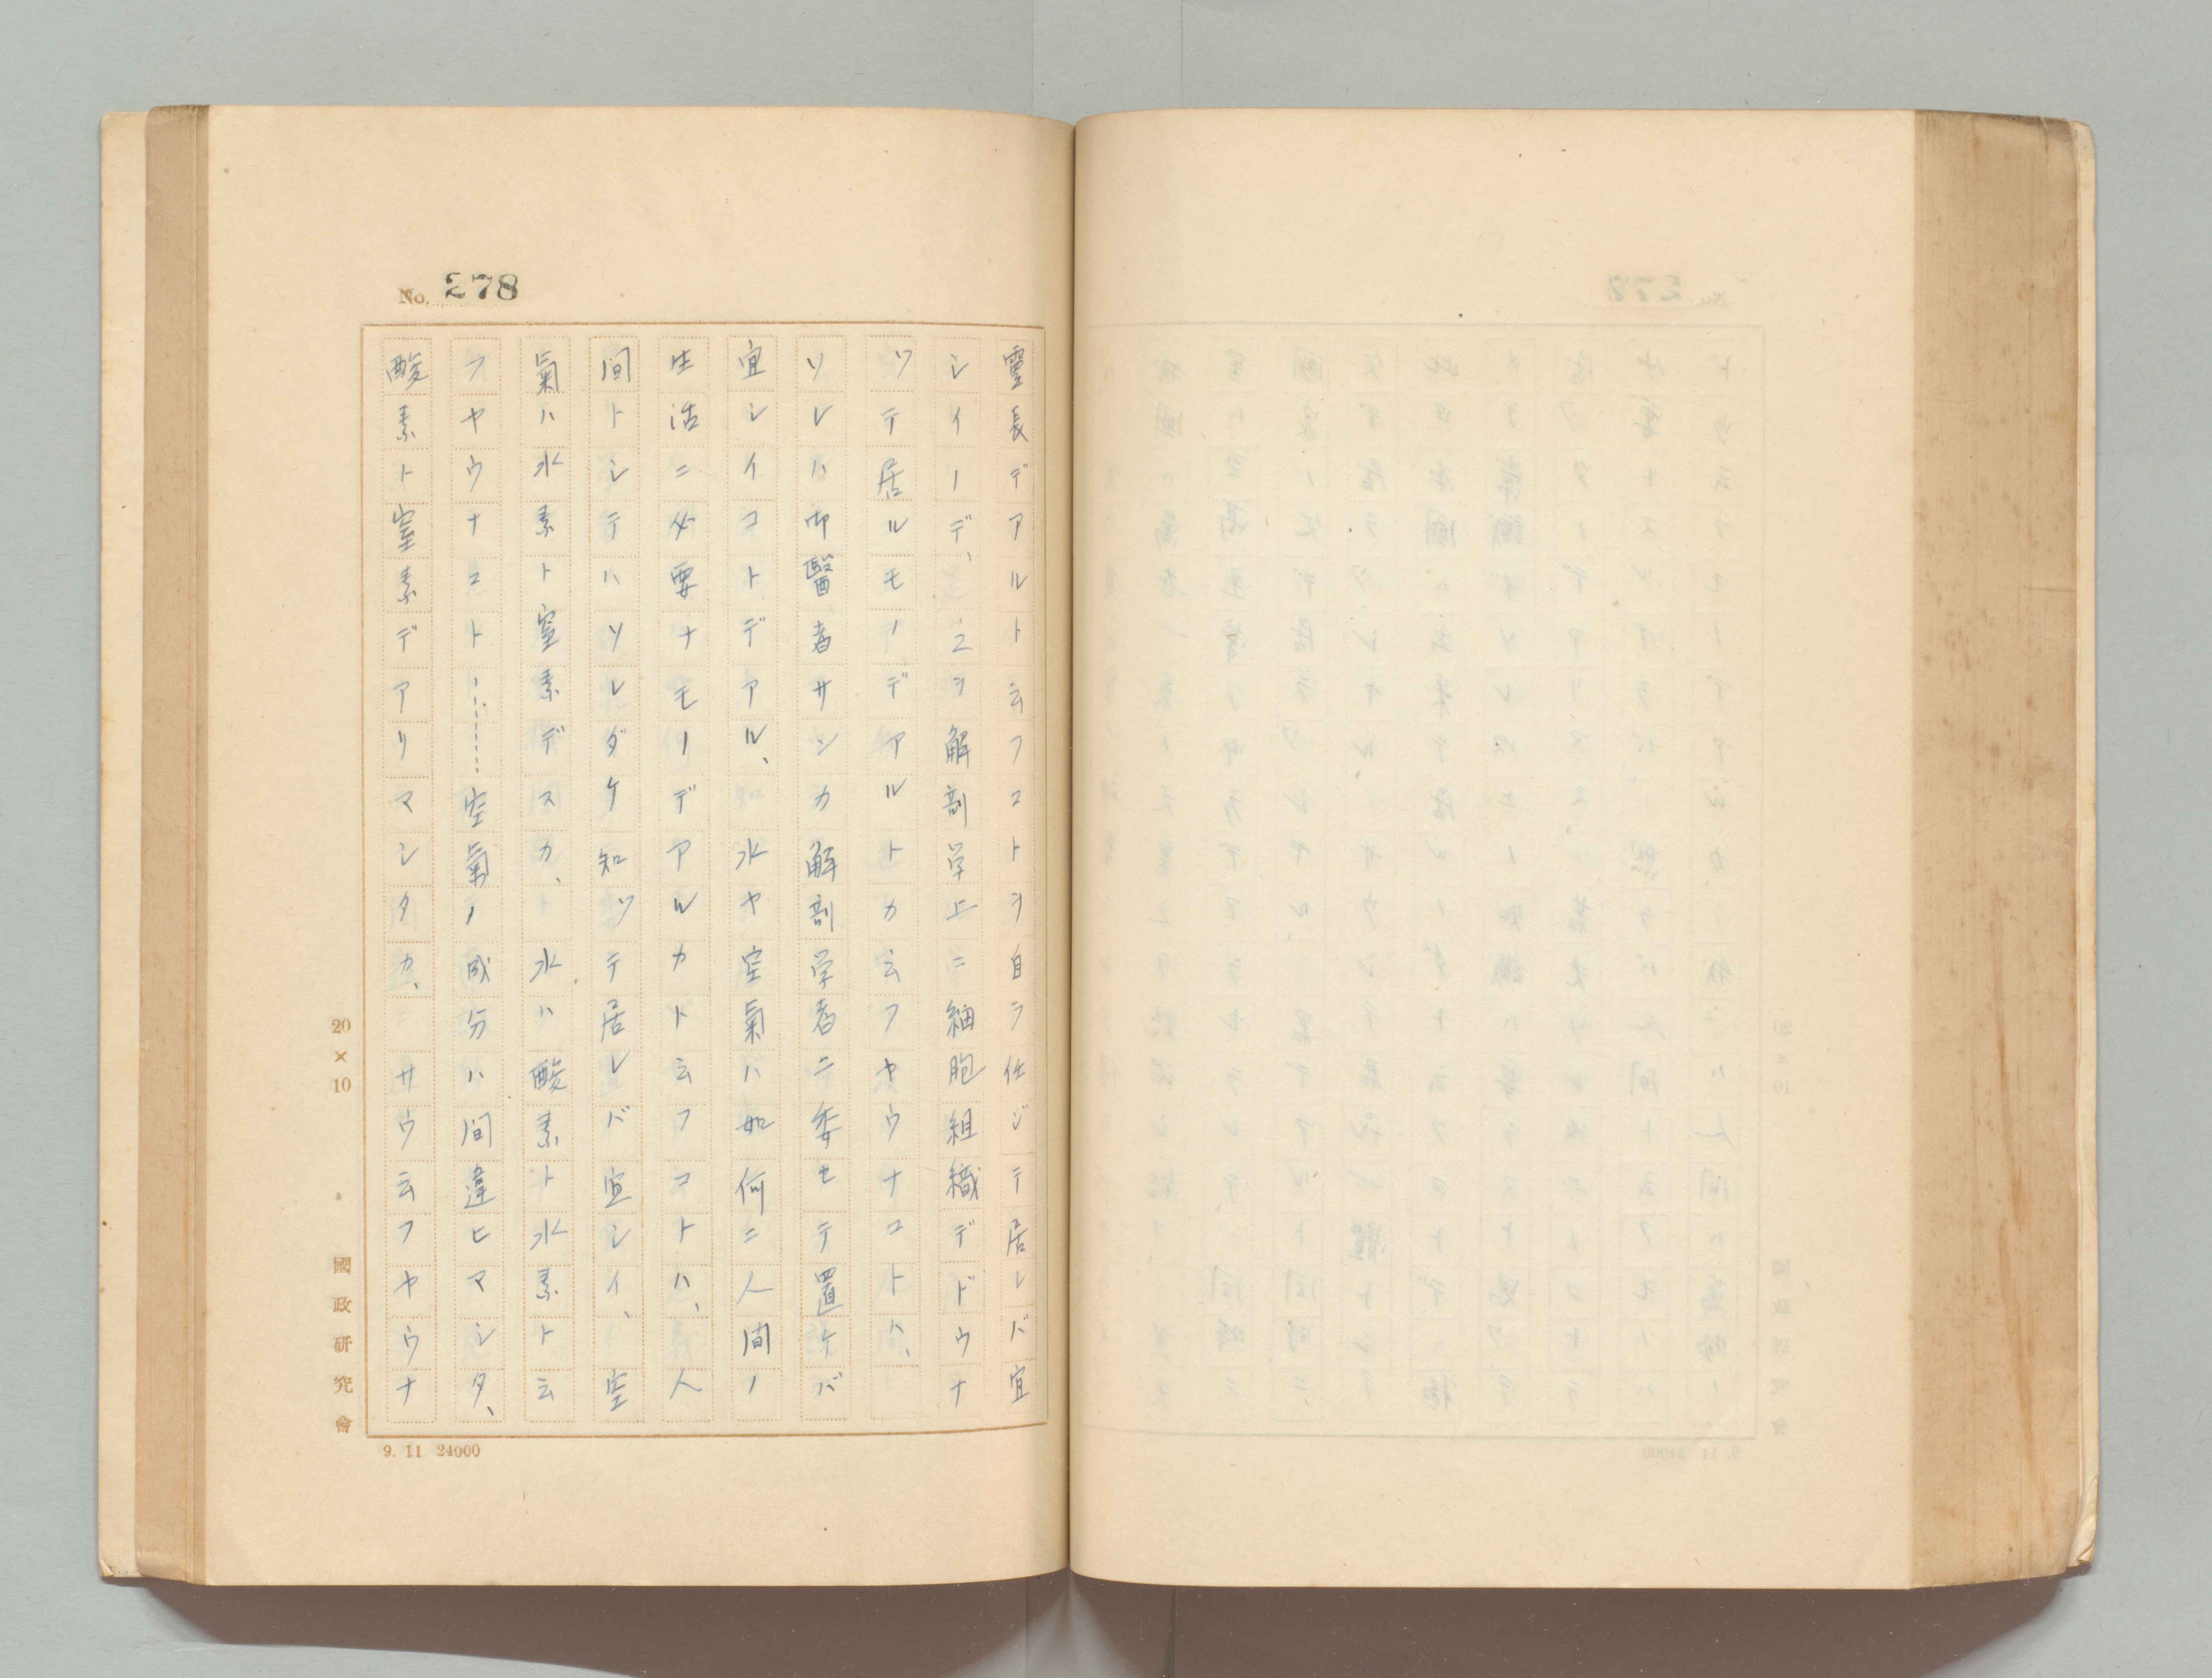 No. 278
靈長デアルト云フコトヲ自ラ任ジテ居レバ宜
シイノデ、之ヲ解剖学上ニ細胞組織デドウナ
ツテ居ルモノデアルトカ云フヤウナコトハ、
ソレハ御醫者サンカ解剖学者ニ委セテ置ケバ
宜シイコトデアル、水ヤ空氣ハ如何ニ人間ノ
生活ニ必要ナモノデアルカト云フコトハ、人
間トシテハソレダケ知ツテ居レバ宜シイ、空
氣ハ水素ト窒素デスカ、水ハ酸素ト水素ト云
フヤウナコト……空氣ノ成分ハ間違ヒマシタ、
酸素ト窒素デアリマシタカ、サウ云フヤウナ
20×10 國政研究會
9. 11 24000